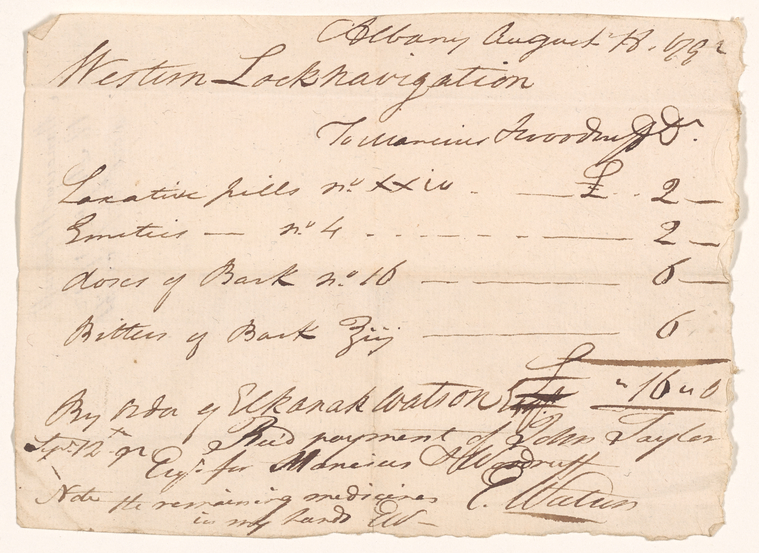 Albany August 18. 1792
Western Lock navigation
To Mancius & Woodruff Dr.
Laxative pills no. xxiv - £ - 2 -
Emetics - no. 4 - 2 -
doses of Bark no. 16 - 6 -
Bitters of Bark ℥iij - 6
£ " 16 " 0
By order of Elkanah Watson
Recd payment of John Taylor
Sepr. 12th 92
Esqr. for Mancius & Woodruff
E. Watson
Note the remaining medicines
in my hands EW -